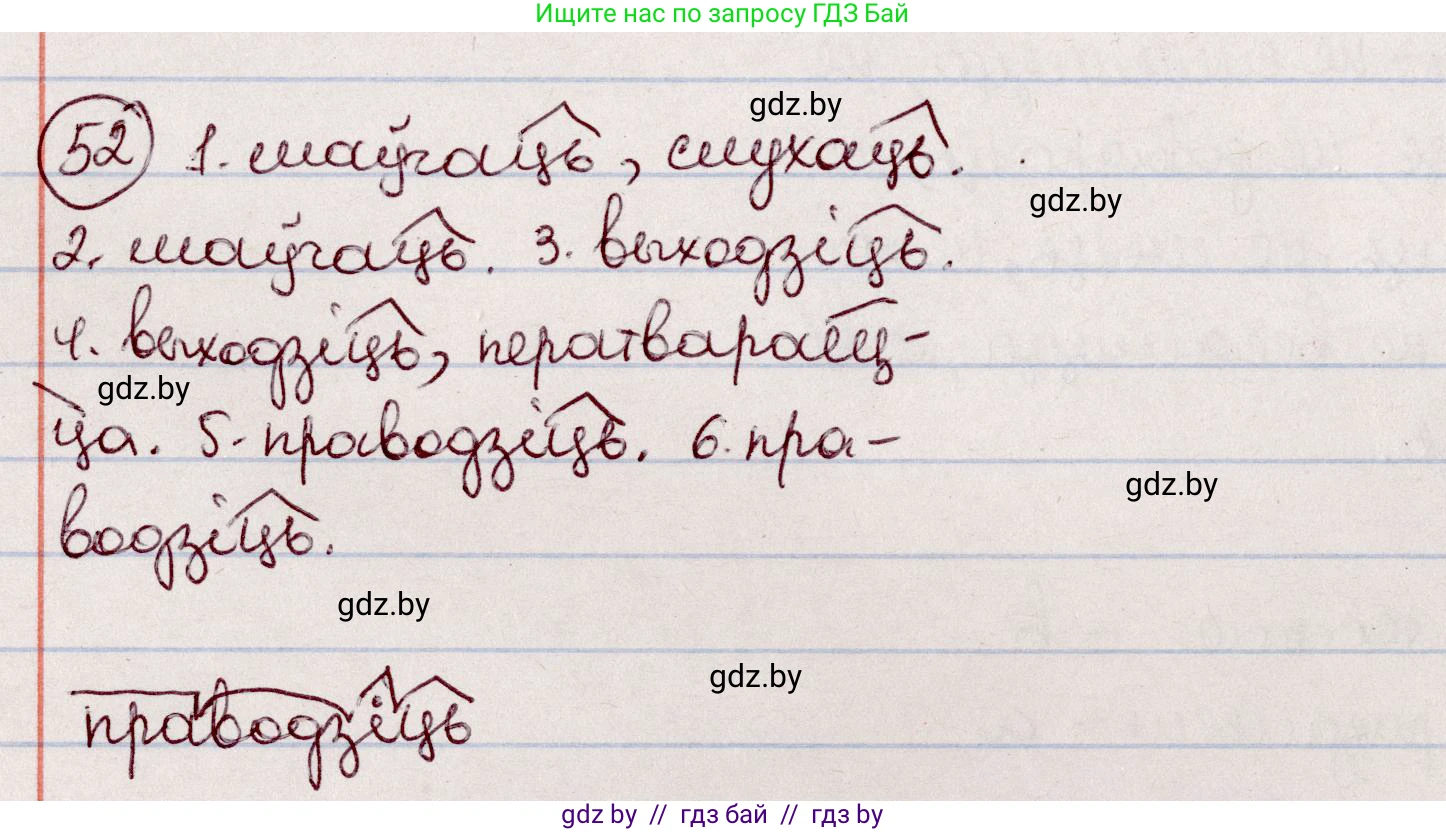 Ищите нас по запросу ГДЗ Бай
gdz.by
52 1. маўчаць, слухаць.
gdz.by
2. маўчаць. 3. выходзіць.
4. выходзіць, ператвараец-
gdz.by
ца. 5. праводзіць. 6. пра-
gdz.by
водзіць.
gdz.by
gdz.by
праводзіць
gdz by // гдз бай // гдз by